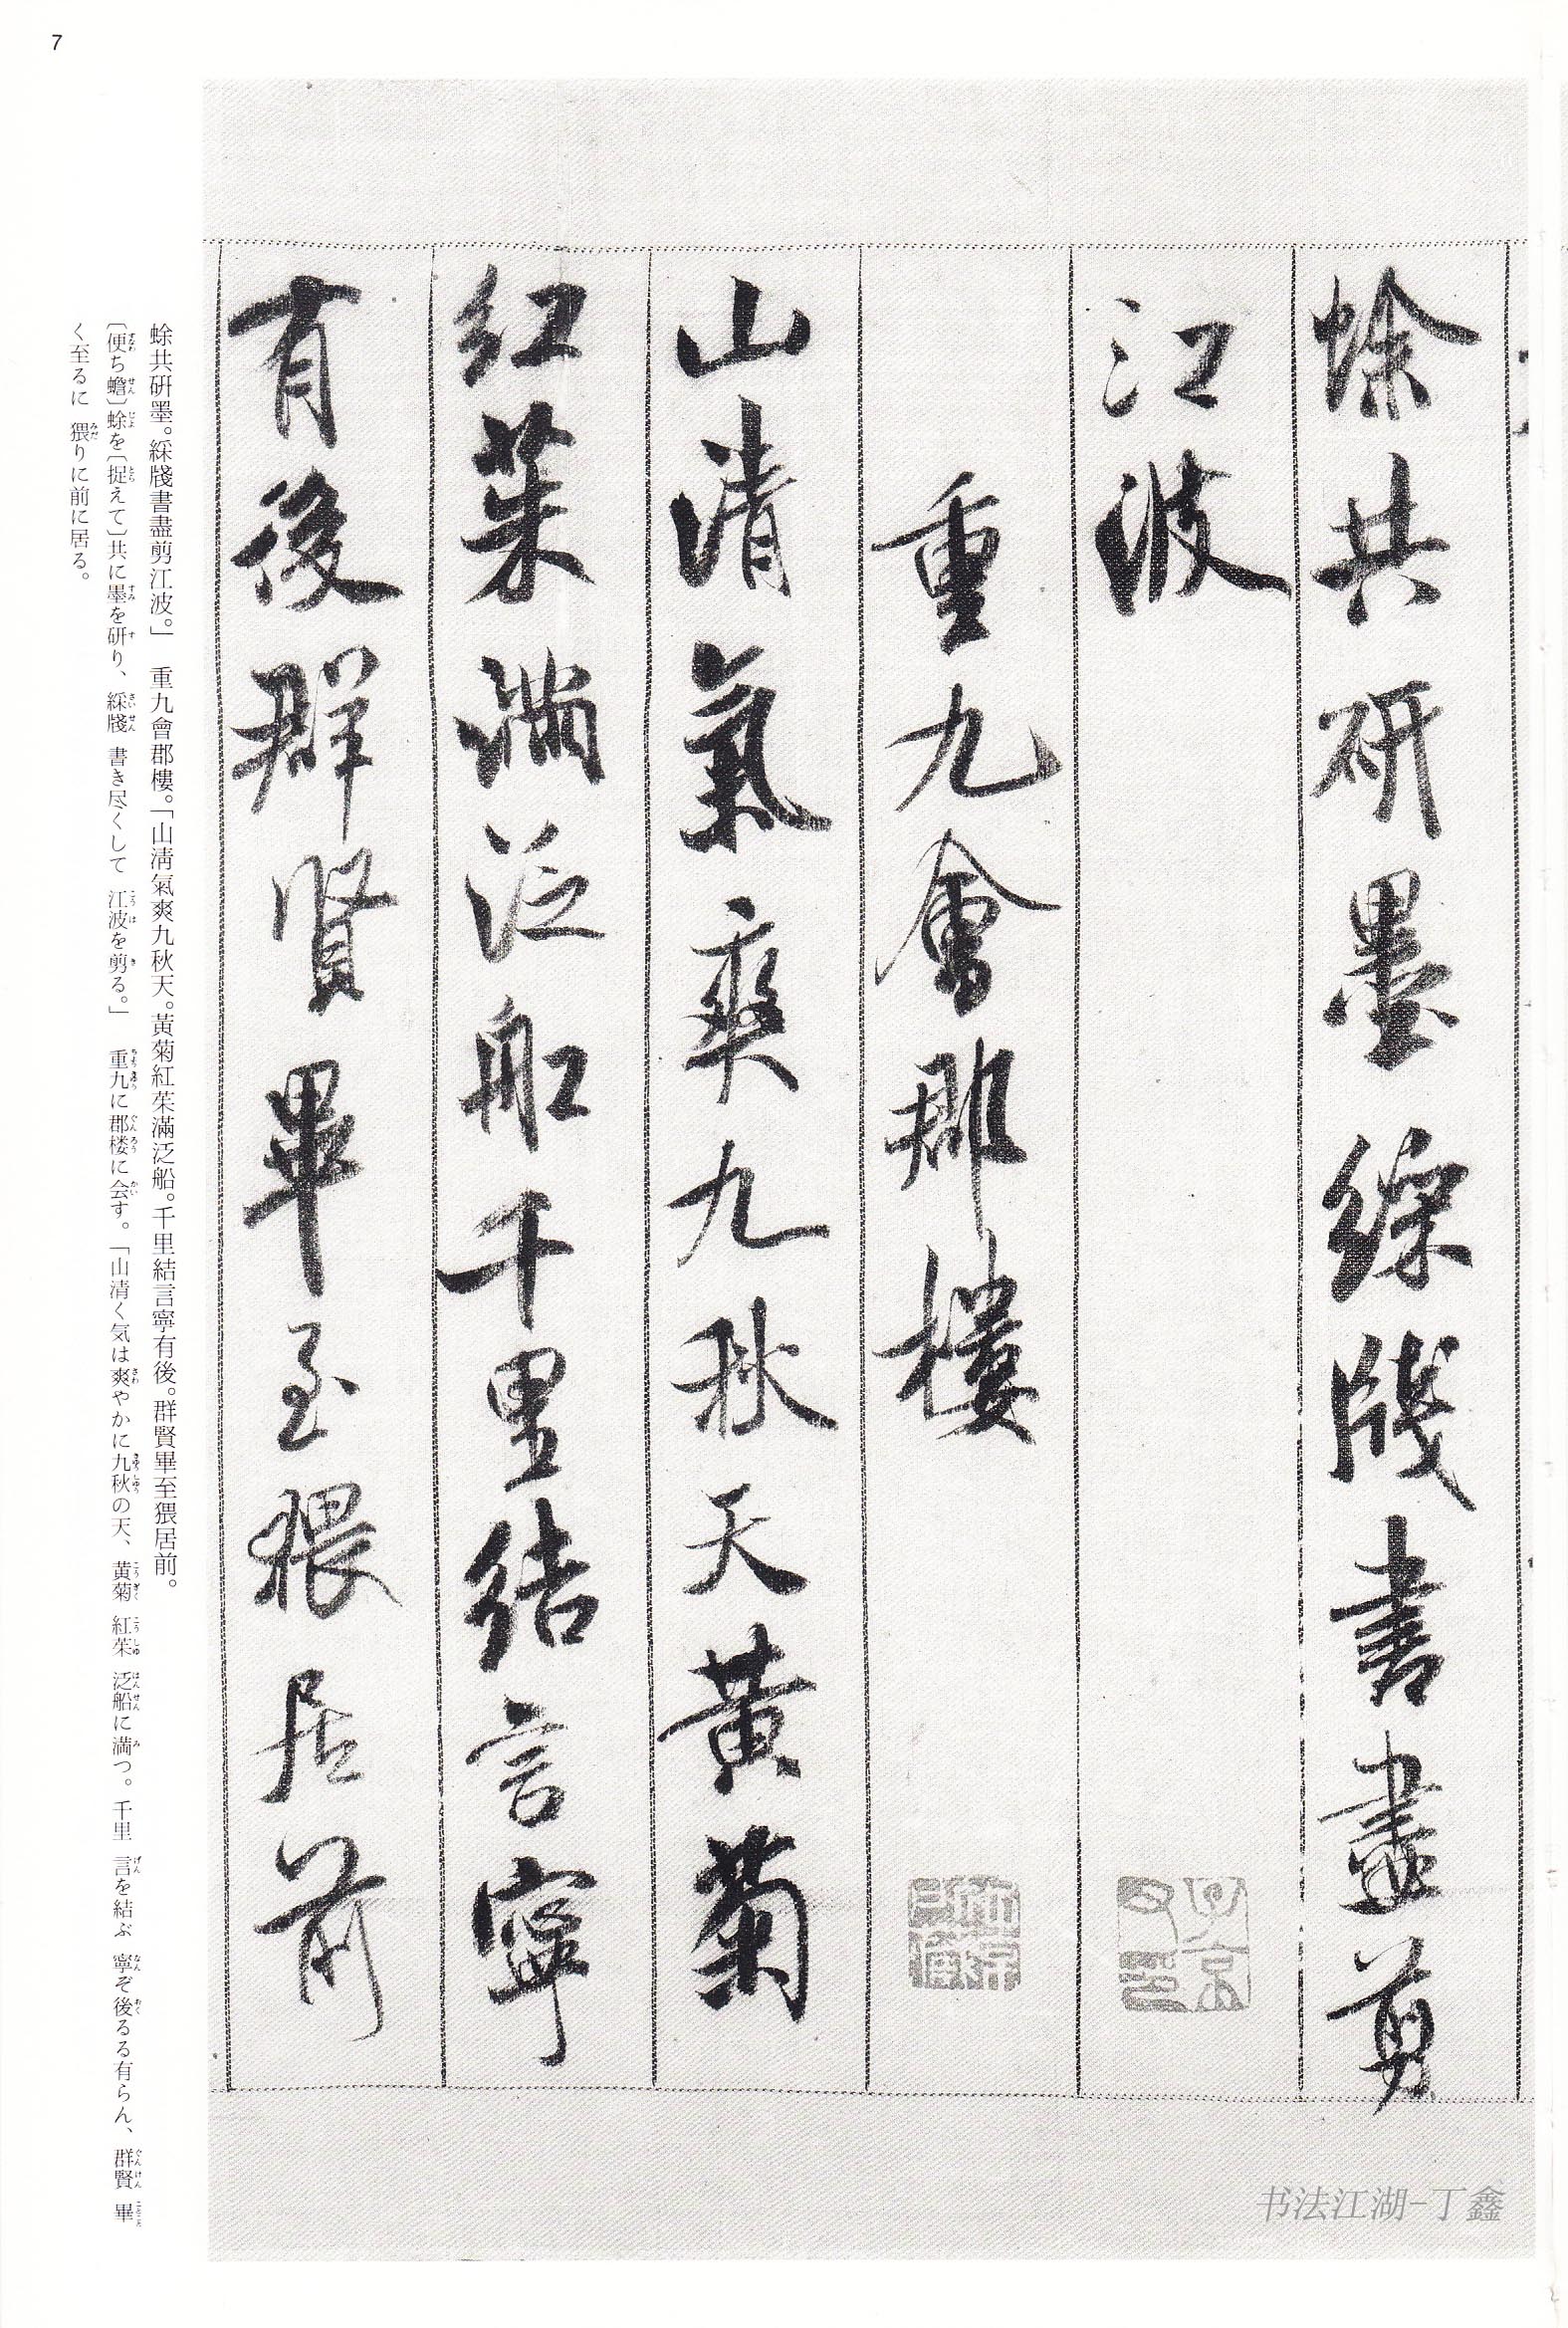 7
蜍共研墨綵牋書盡剪
江波
重九會郡樓
山清氣爽九秋天黃菊
紅茱滿泛船千里結言寧
有後群賢畢至猥居前
蜍共研墨。綵牋書盡剪江波。」 重九會郡樓。「山淸氣爽九秋天。黃菊紅茱滿泛船。千里結言寧有後。群賢畢至猥居前。
〔便ち蟾〕蜍を〔捉えて〕共に墨を研り、綵牋 書き尽くして 江波を剪る。」 重九に郡楼に会す。「山清く気は爽やかに九秋の天、黄菊 紅茱 泛船に満つ。千里 言を結ぶ 寧ぞ後るる有らん、群賢 畢
く至るに 猥りに前に居る。
书法江湖-丁鑫